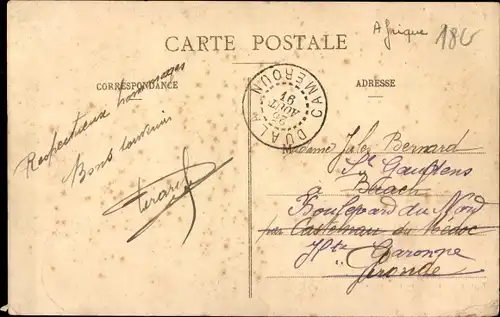 Afrique
180
CARTE POSTALE
CORRESPONDANCE
ADRESSE
DUALA
CAMEROUN
26
AOUT
Respectueux hommages
Bons souvenirs
Madame Jules Bernard
St Gaudens
Brach
Boulevard du Nord
par Castelnau du Médoc
Hte Garonne
Gironde